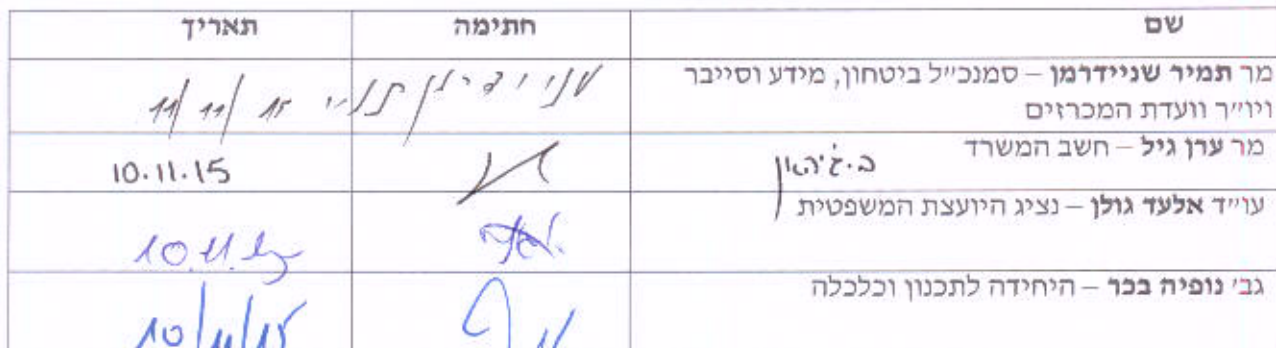 שם חתימה תאריך
מר תמיר שניידרמן – סמנכ״ל ביטחון, מידע וסייבר
ויו״ר וועדת המכרזים
11/11/15
מר ערן גיל – חשב המשרד
10.11.15
עו״ד אלעד גולן – נציג היועצת המשפטית
10.11.15
גב׳ נופיה בכר – היחידה לתכנון וכלכלה
10/11/15